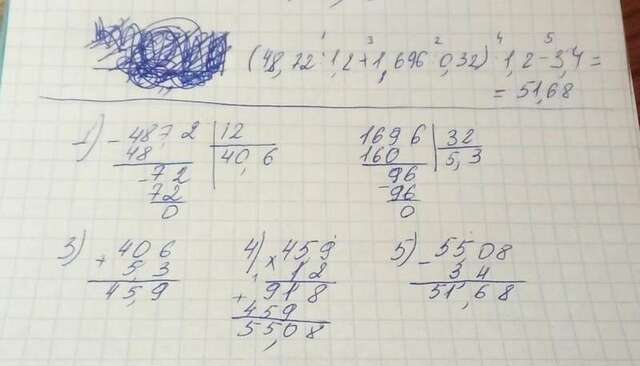 1 3 2 4 5
(48,72 : 1,2 + 1,696 : 0,32) · 1,2 - 3,4 =
= 51,68
1) - 487,2 | 12
48 | 40,6
- 72
72
0
169 6 | 32
160 | 5,3
- 96
96
0
3) + 40 6
5,3
45,9
4) × 45,9
1,2
+ 918
459
55,08
5) - 55,08
3 4
51,68